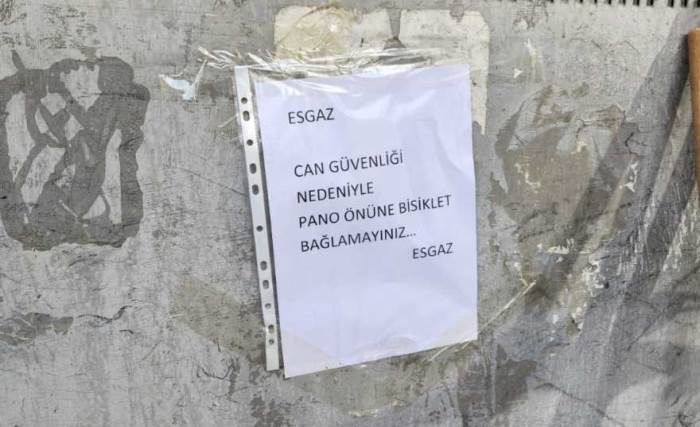 ESGAZ
CAN GÜVENLİĞİ
NEDENİYLE
PANO ÖNÜNE BİSİKLET
BAĞLAMAYINIZ...
ESGAZ